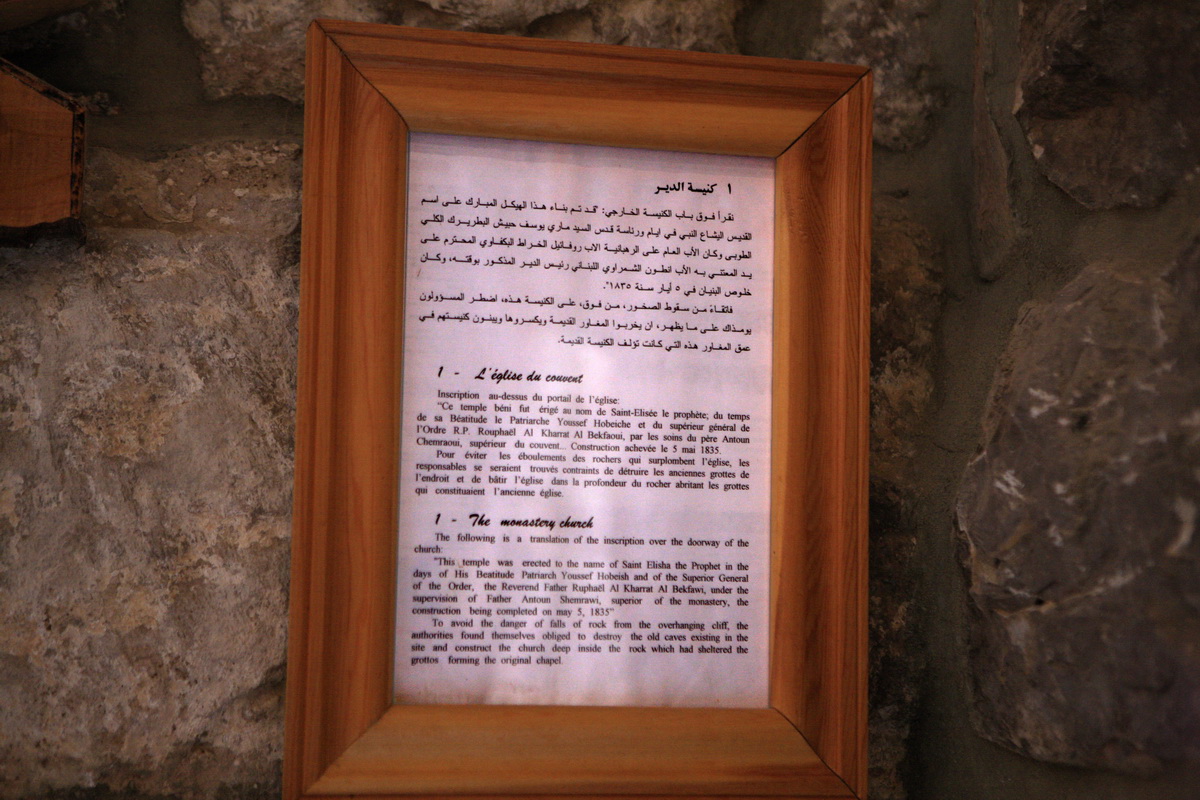 ١ كنيسة الدير
نقرأ فوق باب الكنيسة الخارجي: "قد تم بناء هذا الهيكل المبارك على اسم
القديس اليشاع النبي في ايام ورئاسة قدس السيد ماري يوسف حبيش البطريرك الكلي
الطوبى وكان الأب العام على الرهبانية الاب روفائيل الخراط البكفاوي المحترم على
يد المعتني به الأب انطون الشمراوي اللبناني رئيس الدير المذكور بوقته، وكان
خلوص البنيان في ٥ أيار سنة ١٨٣٥".
فاتقاءً من سقوط الصخور، من فوق، على الكنيسة هذه، اضطر المسؤولون
يومذاك على ما يظهر، ان يخربوا المغاور القديمة ويكسروها ويبنون كنيستهم في
عمق المغاور هذه التي كانت تؤلف الكنيسة القديمة.
1 - L'église du couvent
Inscription au-dessus du portail de l'église:
"Ce temple béni fut érigé au nom de Saint-Elisée le prophète; du temps
de sa Béatitude le Patriarche Youssef Hobeiche et du supérieur général de
l'Ordre R.P. Rouphaël Al Kharrat Al Bekfaoui, par les soins du père Antoun
Chemraoui, supérieur du couvent... Construction achevée le 5 mai 1835.
Pour éviter les éboulements des rochers qui surplombent l'église, les
responsables se seraient trouvés contraints de détruire les anciennes grottes de
l'endroit et de bâtir l'église dans la profondeur du rocher abritant les grottes
qui constituaient l'ancienne église.
1 - The monastery church
The following is a translation of the inscription over the doorway of the
church:
"This temple was erected to the name of Saint Elisha the Prophet in the
days of His Beatitude Patriarch Youssef Hobeish and of the Superior General
of the Order, the Reverend Father Ruphaël Al Kharrat Al Bekfawi, under the
supervision of Father Antoun Shemrawi, superior of the monastery, the
construction being completed on may 5, 1835"
To avoid the danger of falls of rock from the overhanging cliff, the
authorities found themselves obliged to destroy the old caves existing in the
site and construct the church deep inside the rock which had sheltered the
grottos forming the original chapel.